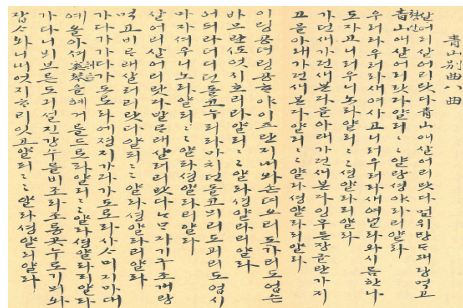 青山別曲八曲
살어리 살어리랏다 青山애 살어리랏다 멀위랑 ᄃᆞ래랑 먹고
青山애 살어리랏다 얄리얄리 얄랑셩 얄라리 얄라
우러라 우러라 새여 자고 니러 우러라 새여 널라와 시름 한 나
도 자고 니러 우니노라 얄리얄리 얄라셩 얄라리 얄라
가던 새 가던 새 본다 믈 아래 가던 새 본다 잉무든 장글란 가지
고 믈 아래 가던 새 본다 얄리얄리 얄라셩 얄라리 얄라
이링공 뎌링공 ᄒᆞ야 이즈란 디내와손뎌 오리도 가리도 업슨
바므란 ᄯᅩ 엇디 호리라 얄리얄리 얄라셩 얄라리 얄라
어듸라 더디던 돌코 누리라 마치던 돌코 믜리도 괴리도 업시
마자셔 우니노라 얄리얄리 얄라셩 얄라리 얄라
살어리 살어리랏다 바ᄅᆞ래 살어리랏다 ᄂᆞᄆᆞ자기 구조개랑
먹고 바ᄅᆞ래 살어리랏다 얄리얄리 얄라셩 얄라리 얄라
가다가 가다가 드로라 에졍지 가다가 드로라 사ᄉᆞ미 지ᇝ대
예 올아셔 奚琴을 혀거를 드로라 얄리얄리 얄라셩 얄라리 얄라
가다니 ᄇᆡ브른 도긔 설진 강수를 비조라 조롱곳 누로기 ᄆᆡ와
잡ᄉᆞ와니 내 엇디 ᄒᆞ리잇고 얄리얄리 얄라셩 얄라리 얄라